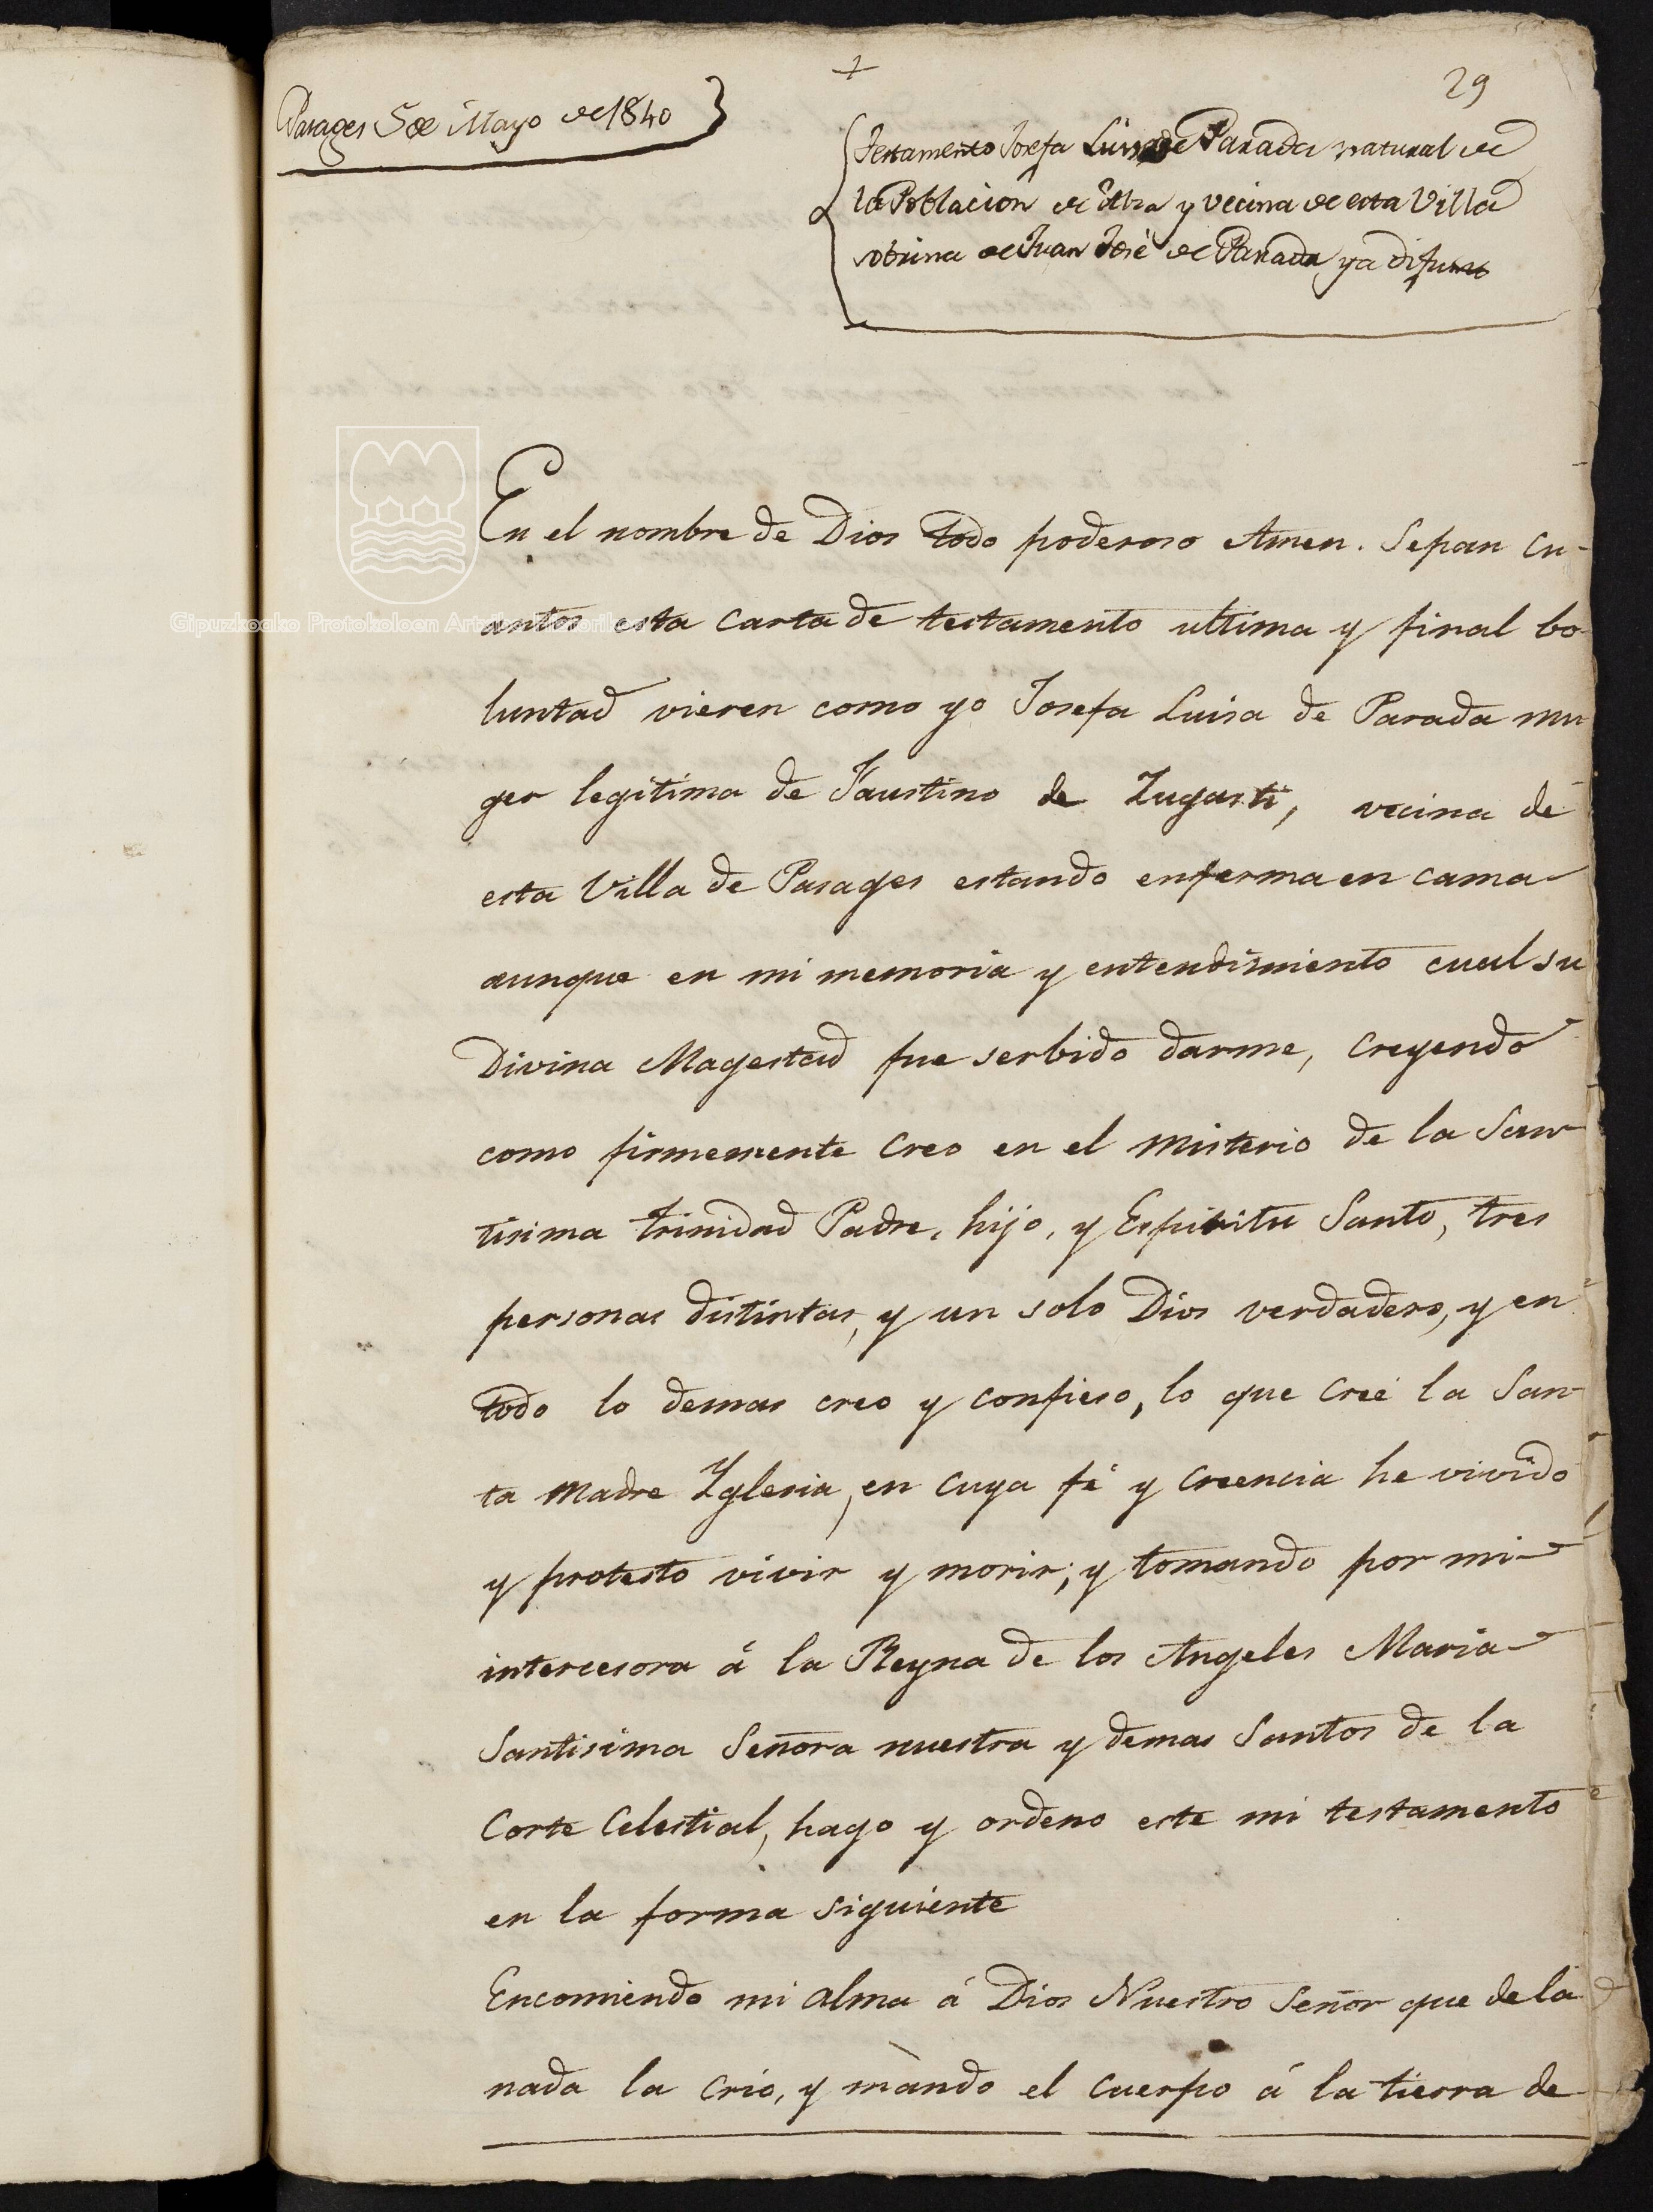 29
Pasages 5 de Mayo de 1840
Testamento Josefa Luisa de Parada natural de
la Poblacion de Alza y vecina de esta Villa
sobrina de Juan José de Parada ya difunto
Gipuzkoako Protokoloen
En el nombre de Dios todo poderoso Amen. Sepan cu-
antos esta carta de testamento ultima y final bo-
luntad vieren como yo Josefa Luisa de Parada mu
ger legitima de Faustino de Zugasti, vecina de
esta Villa de Pasages estando enferma en cama
aunque en mi memoria y entendimiento cual su
Divina Magestad fue serbido darme, creyendo
como firmemente creo en el misterio de la San
tisima trinidad Padre, hijo, y Espiritu Santo, tres
personas distintas, y un solo Dios verdadero, y en
todo lo demas creo y confieso, lo que creé la San
ta Madre Yglesia, en cuya fé y creencia he vivido
y protesto vivir y morir, y tomando por mi
intercesora á la Reyna de los Angeles Maria
Santisima Señora nuestra y demas Santos de la
Corte Celestial, hago y ordeno este mi testamento
en la forma siguiente
Encomiendo mi alma á Dios Nuestro Señor que de la
nada la crio, y mando el cuerpo á la tierra de